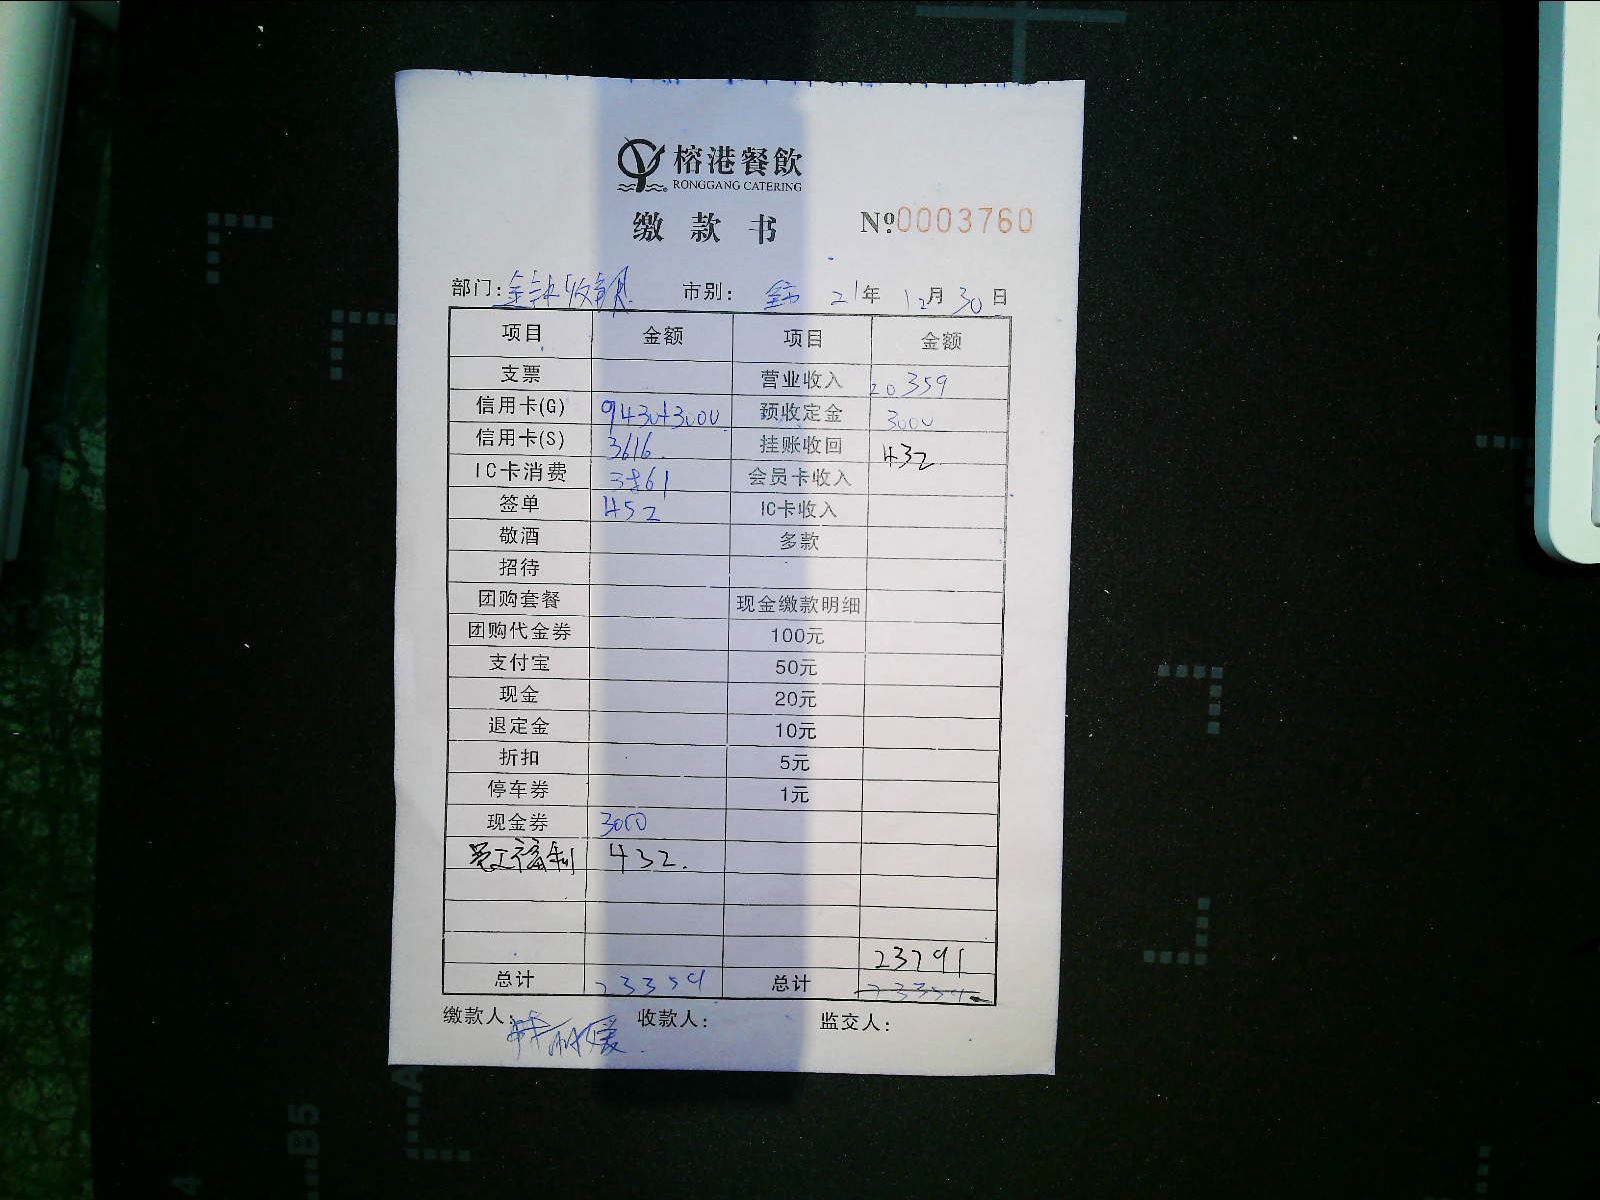 榕港餐飲
RONGGANG CATERING
缴款书 Nº0003760
部门: 市别: 全市 21年 12月 30日
项目 金额 项目 金额
支票 营业收入 20359
信用卡(G) 9430+3000 预收定金 3000
信用卡(S) 3616 挂账收回 432
IC卡消费 3861 会员卡收入
签单 452 IC卡收入
敬酒 多款
招待
团购套餐 现金缴款明细
团购代金券 100元
支付宝 50元
现金 20元
退定金 10元
折扣 5元
停车券 1元
现金券 3000
员工福利 432.
23791
总计 23359 总计 23359
缴款人: 收款人: 监交人:
B5
A
4